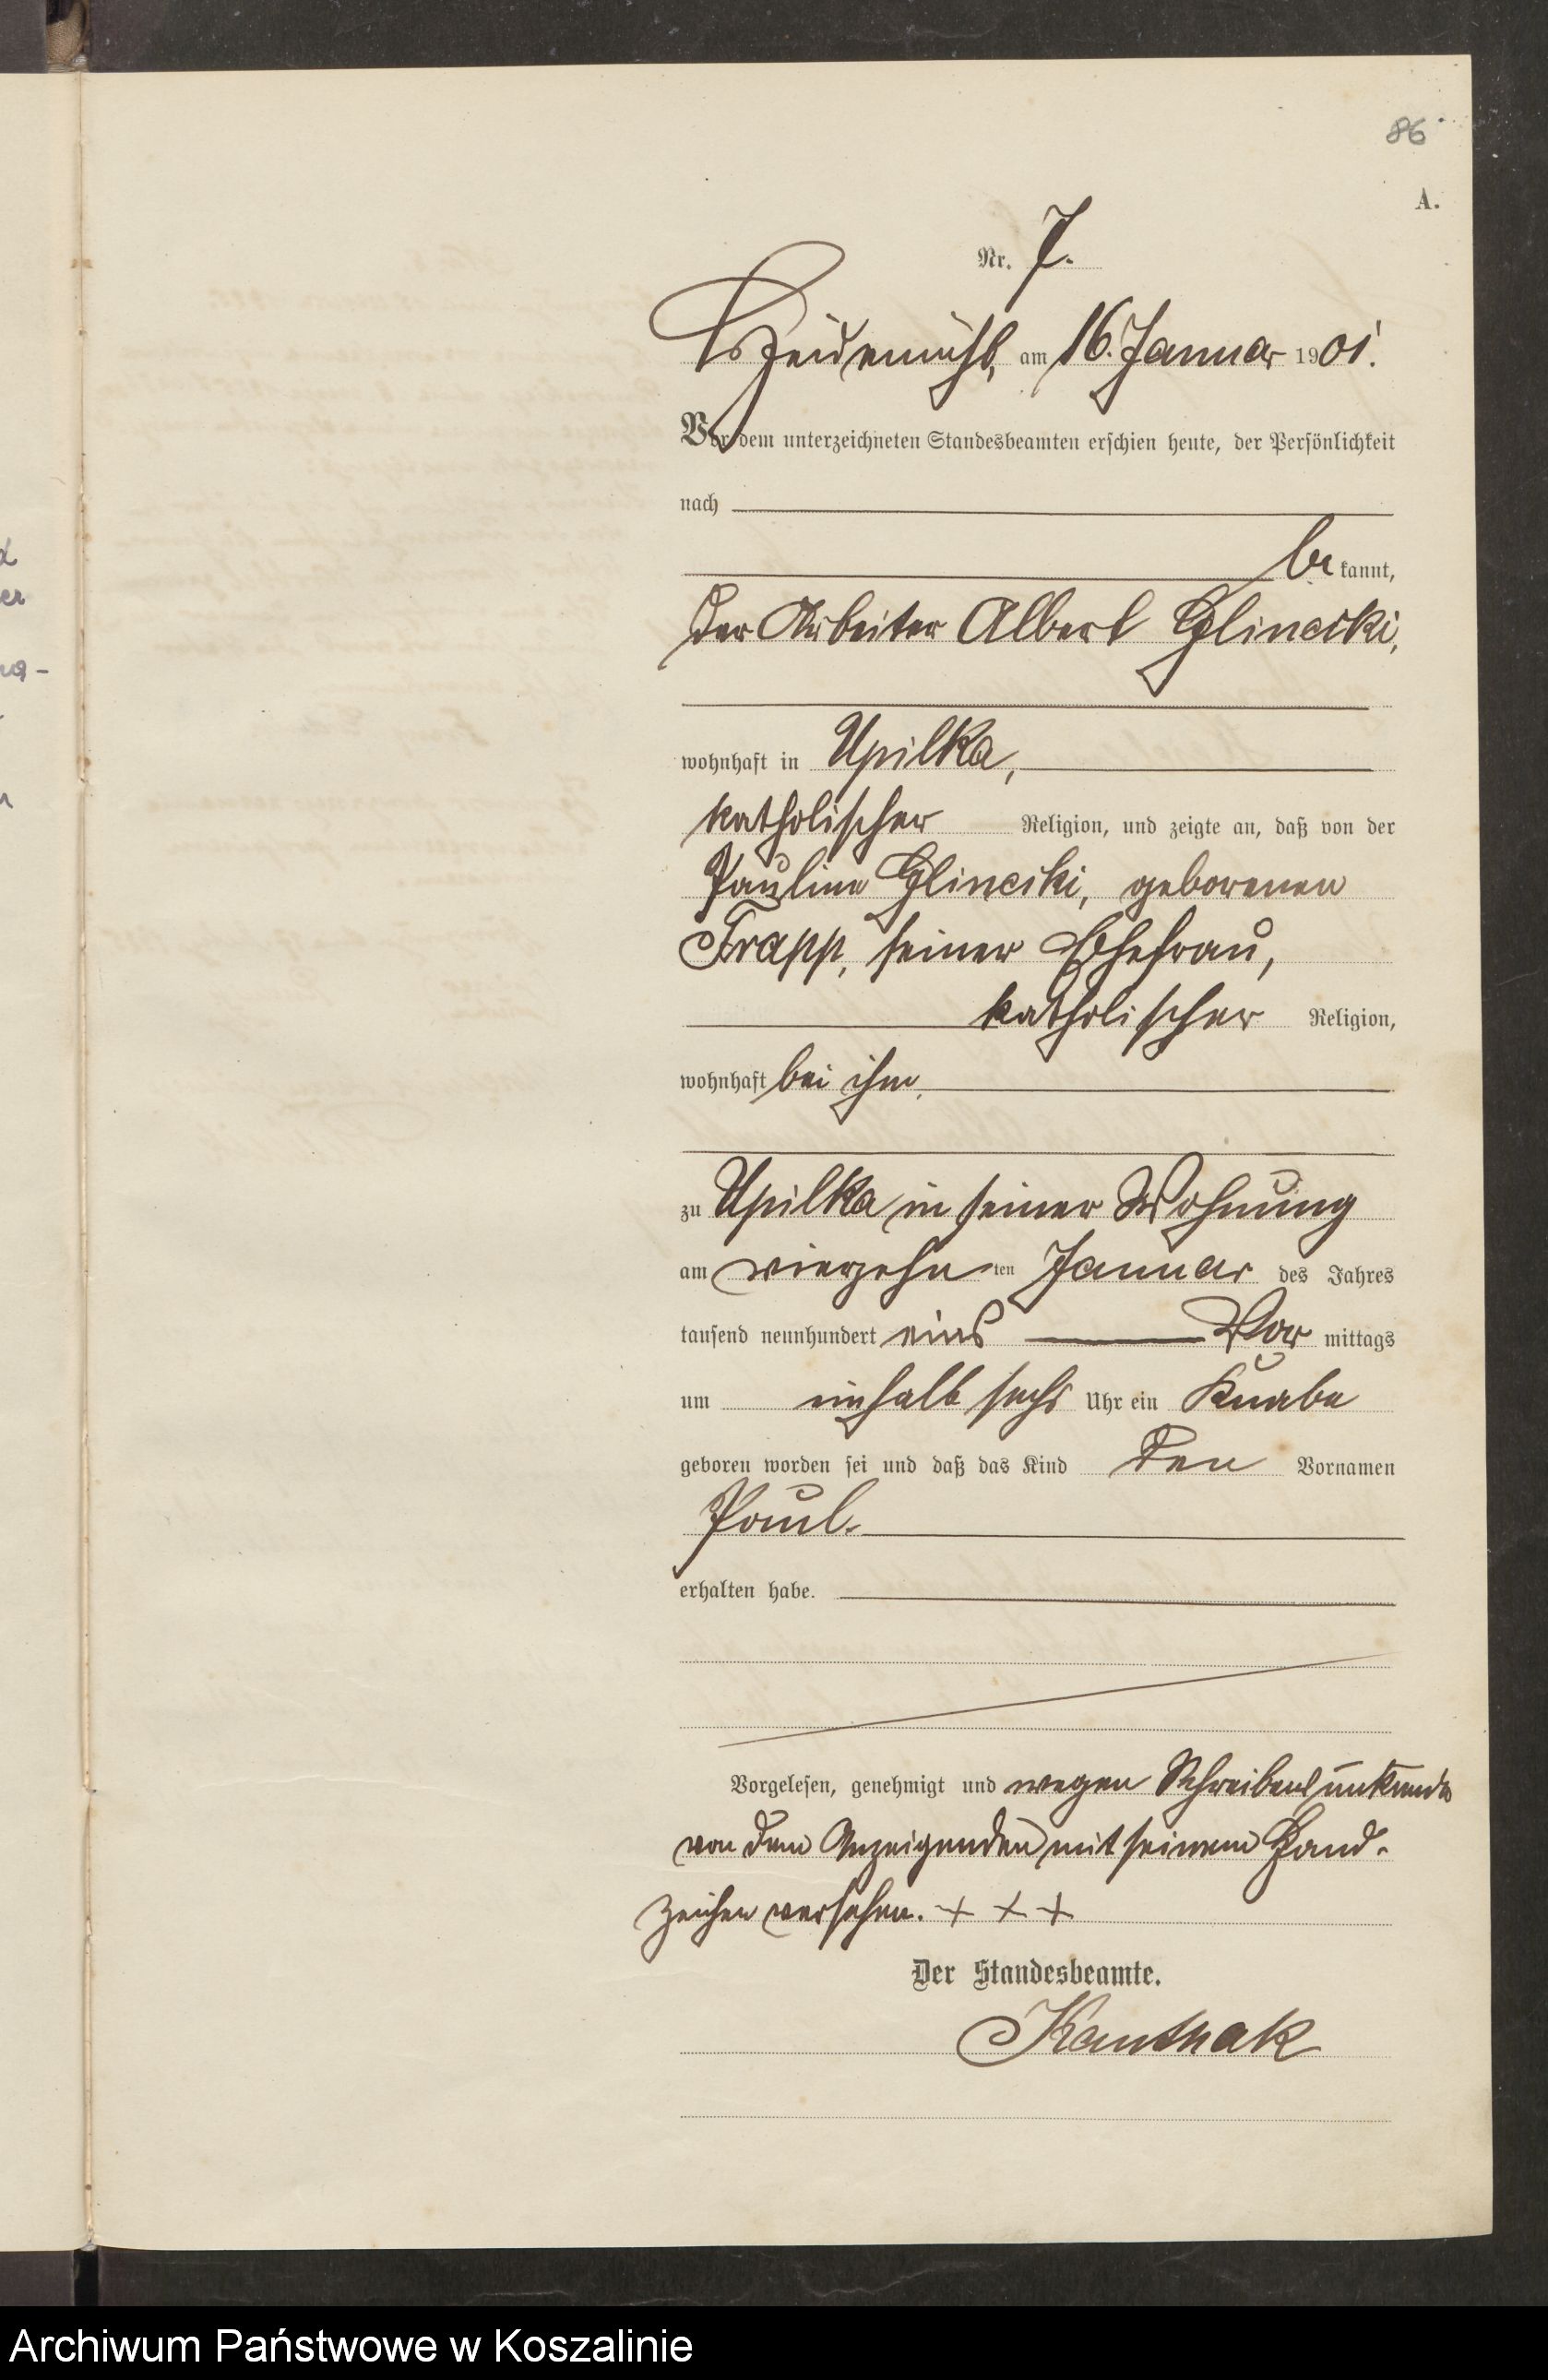 86
A.
Nr. 7.
am 16. Januar 1901.
Vor dem unterzeichneten Standesbeamten erschien heute, der Persönlichkeit
nach
be kannt,
der Arbeiter Albert Glincki,
wohnhaft in Upilka,
katholischer Religion, und zeigte an, daß von der
Pauline Glincki, geborenen
Trapp, seiner Ehefrau,
katholischer Religion,
wohnhaft bei ihm,
zu Upilka in seiner Wohnung
am vierzehn ten Januar des Jahres
tausend neunhundert eins Vor mittags
um einhalb sechs Uhr ein Knabe
geboren worden sei und daß das Kind den Vornamen
Paul.
erhalten habe.
Vorgelesen, genehmigt und wegen Schreibensunkunde
von dem Anzeigenden mit seinem Hand-
zeichen versehen. + + +
Der Standesbeamte.
Kanthak
Archiwum Państwowe w Koszalinie